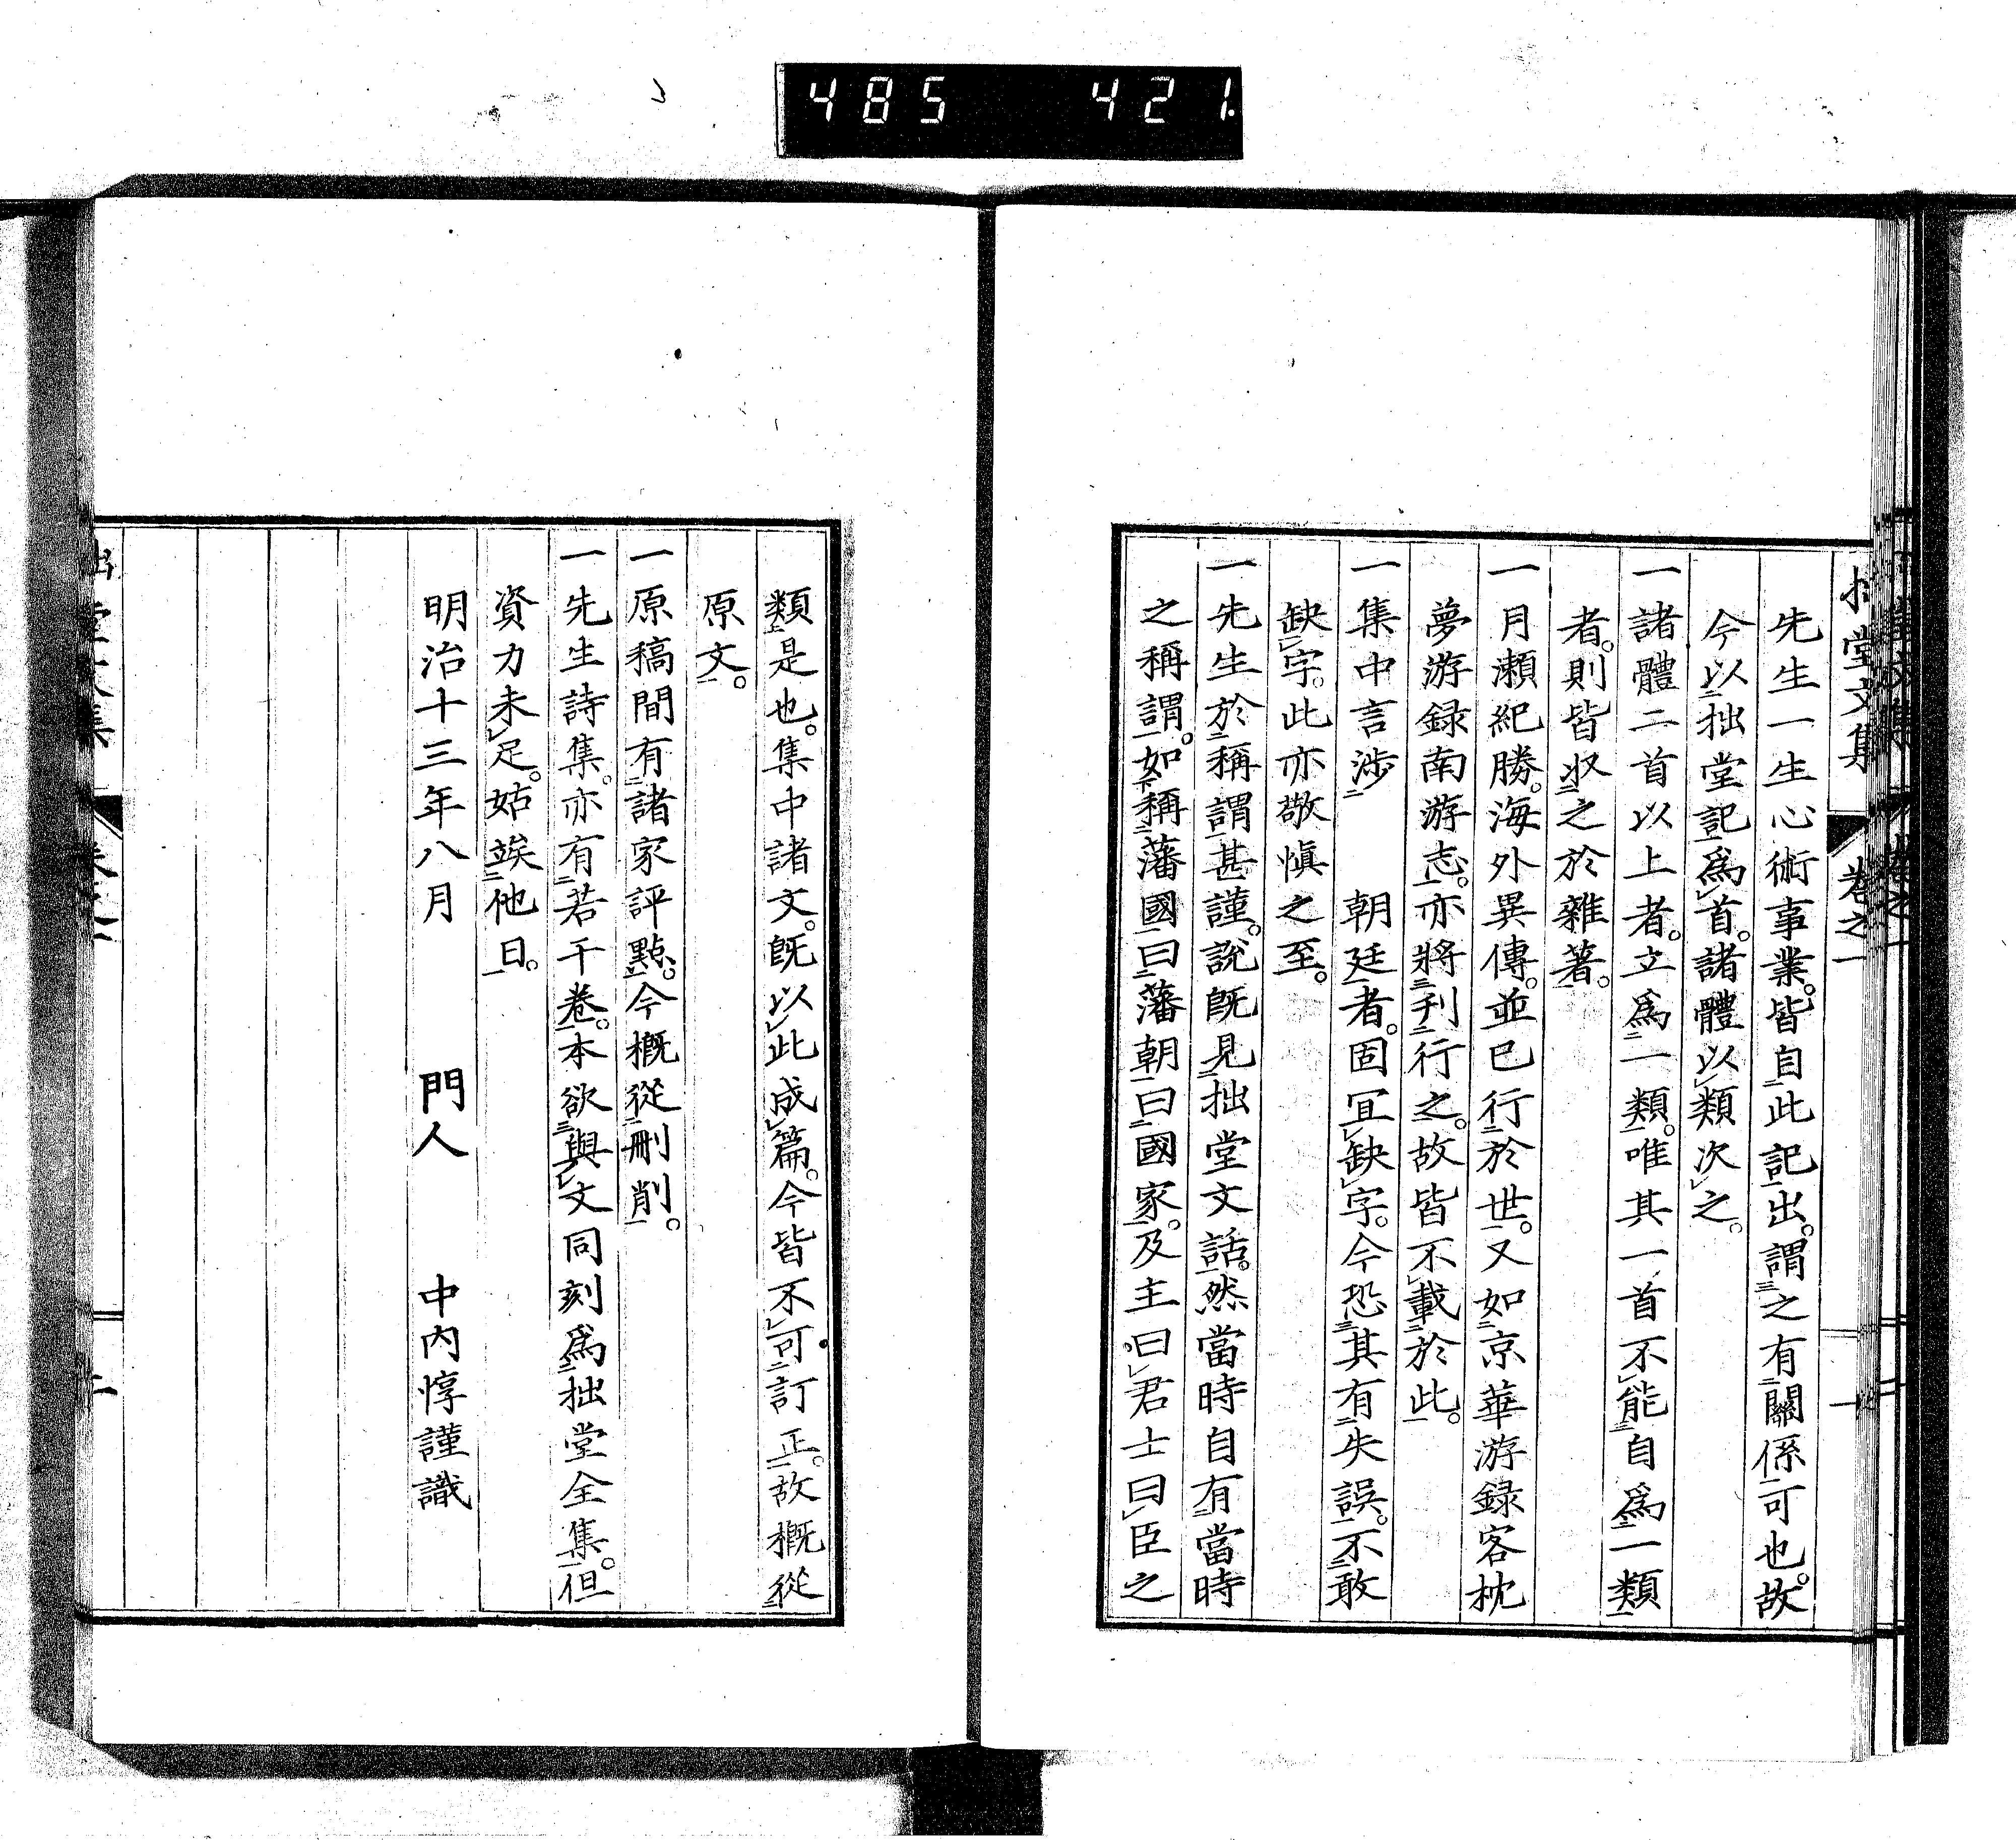 485 421.
堂文集 卷之一 一
先生一生心術事業。皆自此記出。謂之有關係可也。故
今以拙堂記爲首。諸體以類次之。
一諸體二首以上者。立爲一類。唯其一首不能自爲一類
者。則皆収之於雜著。
一月瀬紀勝。海外異傳。並已行於世。又如京華游録客枕
夢游録南游志。亦將刊行之。故皆不載於此。
一集中言涉 朝廷者。固宜缺字。今恐其有失誤。不敢
缺字。此亦敬愼之至。
一先生於稱謂甚謹。說既見拙堂文話。然當時自有當時
之稱謂。如稱藩國曰藩朝曰國家。及主曰君士曰臣之
類是也。集中諸文。既以此成篇。今皆不可訂正。故概從
原文。
一原稿間有諸家評點。今概從刪削。
一先生詩集。亦有若干卷。本欲與文同刻爲拙堂全集。但
資力未足。姑竢他日。
明治十三年八月 門人 中内惇謹識